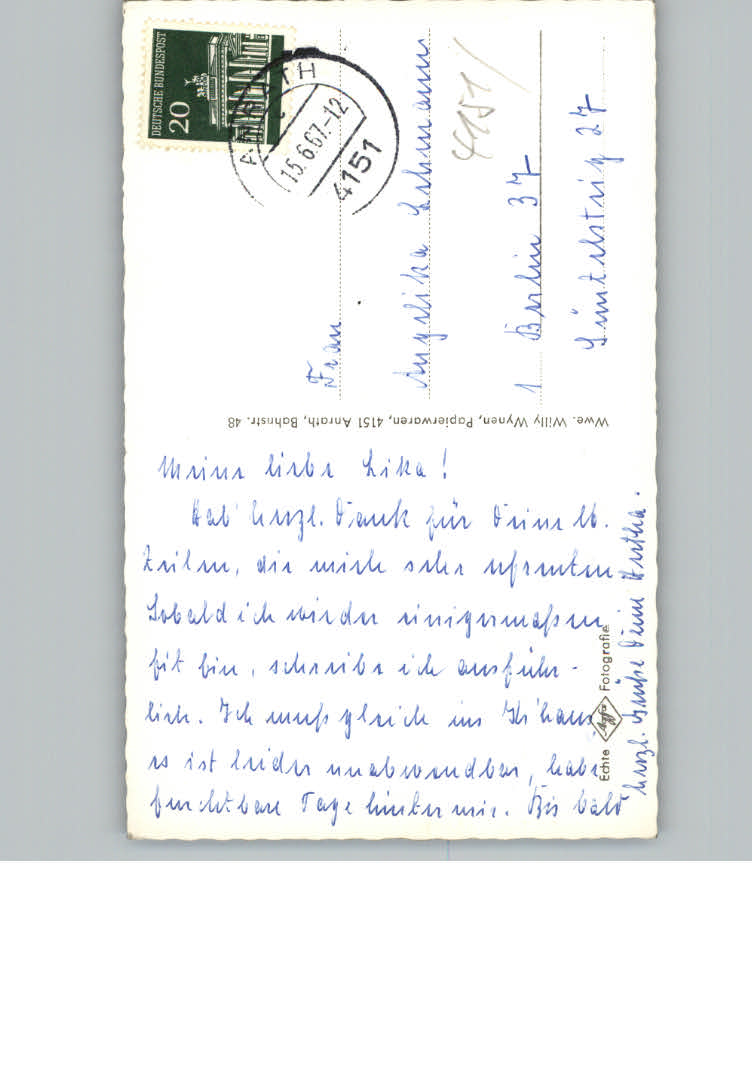 Meine liebe Lika!
Hab' herzl. Dank für Deine lb.
Zeilen, die mich sehr erfreuten.
Sobald ich wieder einigermaßen
fit bin, schreibe ich ausführ-
lich. Ich muß gleich ins Kr'haus,
es ist leider unabwendbar, habe
furchtbare Tage hinter mir. Bis bald
herzl. Grüße Deine Hertha.
DEUTSCHE BUNDESPOST
20
ANRATH
15.6.67.-12
4151
4151/
Frau
Angelika Lehmann
1 Berlin 37
27
Wwe. Willy Wynen, Papierwaren, 4151 Anrath, Bahnstr. 48
Echte Agfa Fotografie